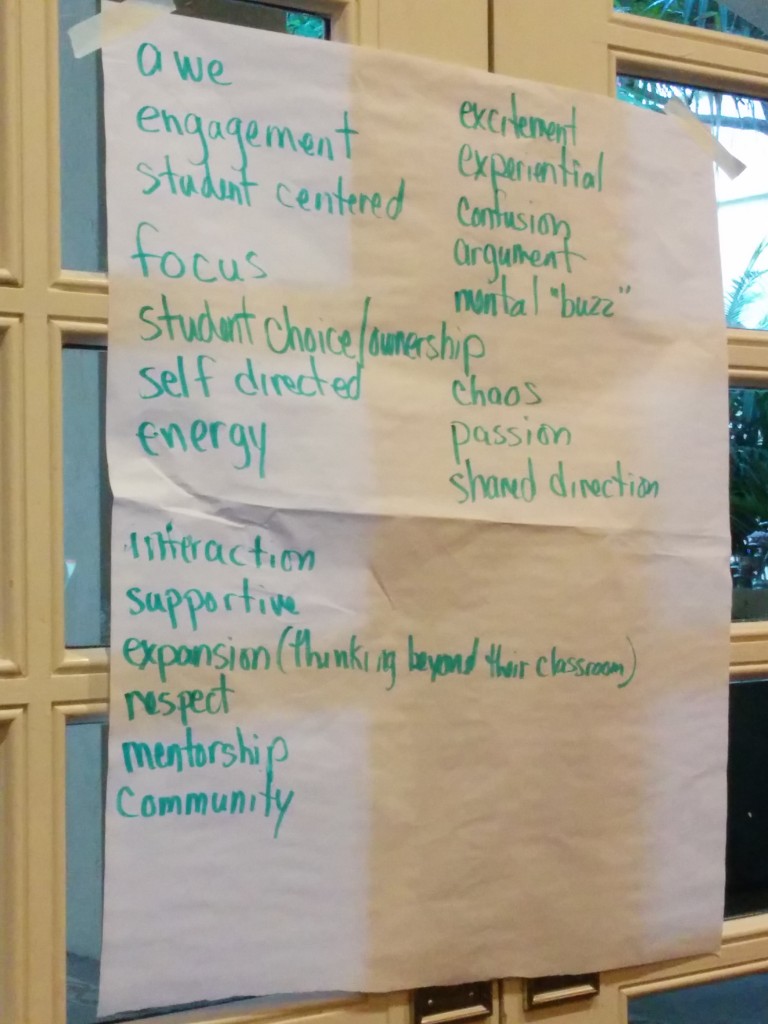 awe
engagement
student centered
focus
student choice/ownership
self directed
energy
interaction
supportive
expansion (thinking beyond their classroom)
respect
mentorship
community
excitement
experiential
confusion
argument
mental "buzz"
chaos
passion
shared direction